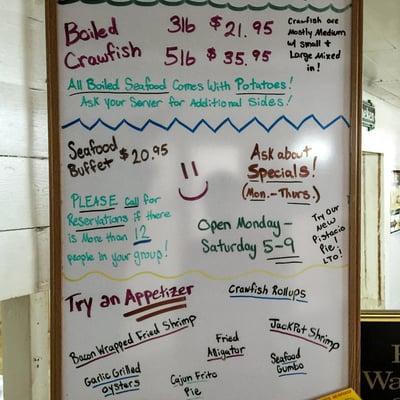 Boiled 3lb $21.95
Crawfish 5lb $35.95
Crawfish are
Mostly Medium
w/ small &
Large Mixed
in!
All Boiled Seafood Comes With Potatoes!
Ask your Server for Additional Sides!
Seafood
Buffet $20.95
Ask about
Specials!
(Mon.-Thurs.)
PLEASE Call for
Reservations if there
is More than 12
people in your group!
Open Monday -
Saturday 5-9
Try our
New
Pistacio
Pie!
LTO!
Try an Appetizer
Crawfish Rollups
Bacon Wrapped Fried Shrimp
Fried
Alligator
JackPot Shrimp
Garlic Grilled
oysters
Cajun Frito
Pie
Seafood
Gumbo